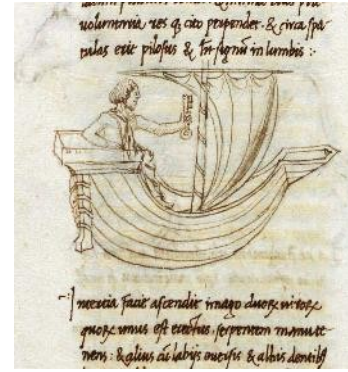 voluntaria, res q̃ cito perpendet. & circa spa
tulas erit pilosus & hr̃ signũ in lumbis :·
In tertia facie ascendit imago duorꝝ virorꝝ
quorꝝ unus est erectus, serpentem manu te
nens : & alius cũ labijs
& albis dentibꝫ